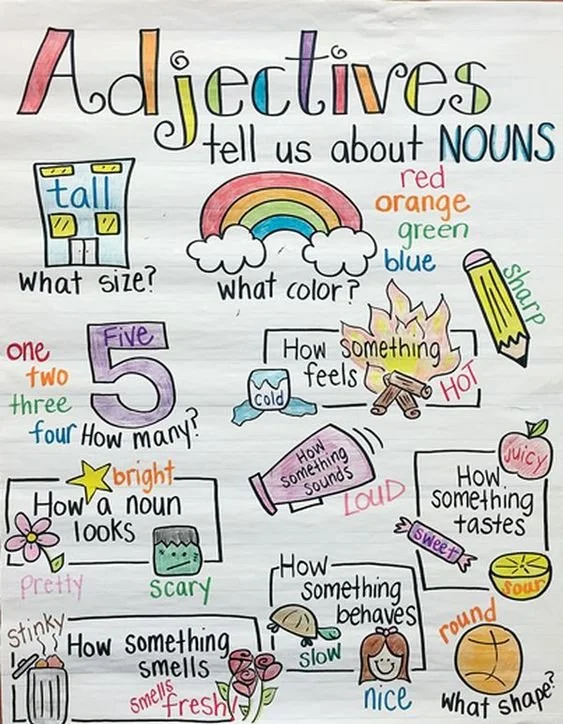 Adjectives
tell us about NOUNS
tall
what size?
what color?
red
orange
green
blue
sharp
one
two
three
four
Five
5
How many?
How something
feels
cold
HOT
How
something
sounds
LOUD
How
something
tastes
juicy
sweet
sour
bright
How a noun
looks
pretty
scary
How
something
behaves
slow
nice
stinky
How something
smells
smells
fresh!
round
what shape?